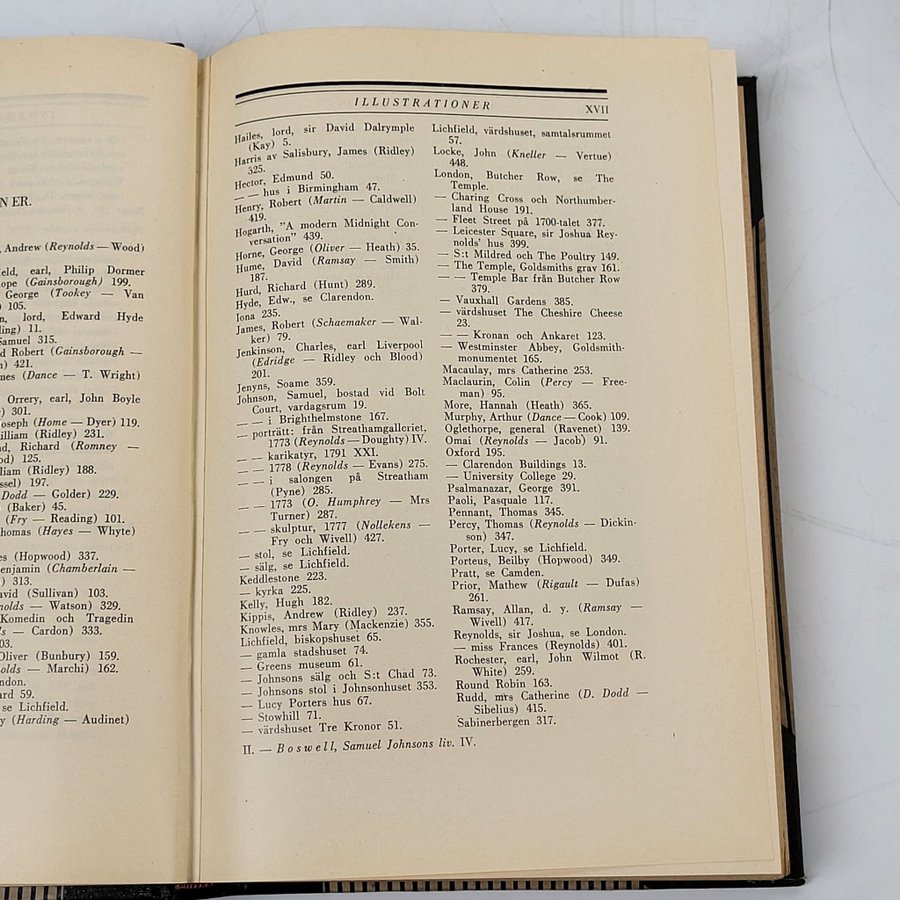 NER.
, Andrew (Reynolds — Wood)
eld, earl, Philip Dormer
ope (Gainsborough) 199.
George (Tookey — Van
) 105.
n, lord, Edward Hyde
ling) 11.
Samuel 315.
d Robert (Gainsborough —
n) 421.
mes (Dance — T. Wright)
Orrery, earl, John Boyle
) 301.
oseph (Home — Dyer) 119.
illiam (Ridley) 231.
nd, Richard (Romney —
od) 125.
liam (Ridley) 188.
ssel) 197.
Dodd — Golder) 229.
(Baker) 45.
(Fry — Reading) 101.
homas (Hayes — Whyte)
es (Hopwood) 337.
enjamin (Chamberlain —
) 313.
avid (Sullivan) 103.
nolds — Watson) 329.
Komedin och Tragedin
ls — Cardon) 333.
03.
Oliver (Bunbury) 159.
olds — Marchi) 162.
ndon.
ard 59.
se Lichfield.
y (Harding — Audinet)
ILLUSTRATIONER XVII
Hailes, lord, sir David Dalrymple
(Kay) 5.
Harris av Salisbury, James (Ridley)
325.
Hector, Edmund 50.
— — hus i Birmingham 47.
Henry, Robert (Martin — Caldwell)
419.
Hogarth, "A modern Midnight Con-
versation" 439.
Horne, George (Oliver — Heath) 35.
Hume, David (Ramsay — Smith)
187.
Hurd, Richard (Hunt) 289.
Hyde, Edw., se Clarendon.
Iona 235.
James, Robert (Schaemaker — Wal-
ker) 79.
Jenkinson, Charles, earl Liverpool
(Edridge — Ridley och Blood)
201.
Jenyns, Soame 359.
Johnson, Samuel, bostad vid Bolt
Court, vardagsrum 19.
— — i Brighthelmstone 167.
— porträtt: från Streathamgalleriet,
1773 (Reynolds — Doughty) IV.
— — karikatyr, 1791 XXI.
— — 1778 (Reynolds — Evans) 275.
— — i salongen på Streatham
(Pyne) 285.
— — 1773 (O. Humphrey — Mrs
Turner) 287.
— — skulptur, 1777 (Nollekens —
Fry och Wivell) 427.
— stol, se Lichfield.
— sälg, se Lichfield.
Keddlestone 223.
— kyrka 225.
Kelly, Hugh 182.
Kippis, Andrew (Ridley) 237.
Knowles, mrs Mary (Mackenzie) 355.
Lichfield, biskopshuset 65.
— gamla stadshuset 74.
— Greens museum 61.
— Johnsons sälg och S:t Chad 73.
— Johnsons stol i Johnsonhuset 353.
— Lucy Porters hus 67.
— Stowhill 71.
— värdshuset Tre Kronor 51.
Lichfield, värdshuset, samtalsrummet
57.
Locke, John (Kneller — Vertue)
448.
London, Butcher Row, se The
Temple.
— Charing Cross och Northumber-
land House 191.
— Fleet Street på 1700-talet 377.
— Leicester Square, sir Joshua Rey-
nolds' hus 399.
— S:t Mildred och The Poultry 149.
— The Temple, Goldsmiths grav 161.
— — Temple Bar från Butcher Row
379.
— Vauxhall Gardens 385.
— värdshuset The Cheshire Cheese
23.
— — Kronan och Ankaret 123.
— Westminster Abbey, Goldsmith-
monumentet 165.
Macaulay, mrs Catherine 253.
Maclaurin, Colin (Percy — Free-
man) 95.
More, Hannah (Heath) 365.
Murphy, Arthur (Dance — Cook) 109.
Oglethorpe, general (Ravenet) 139.
Omai (Reynolds — Jacob) 91.
Oxford 195.
— Clarendon Buildings 13.
— University College 29.
Psalmanazar, George 391.
Paoli, Pasquale 117.
Pennant, Thomas 345.
Percy, Thomas (Reynolds — Dickin-
son) 347.
Porter, Lucy, se Lichfield.
Porteus, Beilby (Hopwood) 349.
Pratt, se Camden.
Prior, Mathew (Rigault — Dufas)
261.
Ramsay, Allan, d. y. (Ramsay —
Wivell) 417.
Reynolds, sir Joshua, se London.
— miss Frances (Reynolds) 401.
Rochester, earl, John Wilmot (R.
White) 259.
Round Robin 163.
Rudd, mrs Catherine (D. Dodd —
Sibelius) 415.
Sabinerbergen 317.
II. — Boswell, Samuel Johnsons liv. IV.